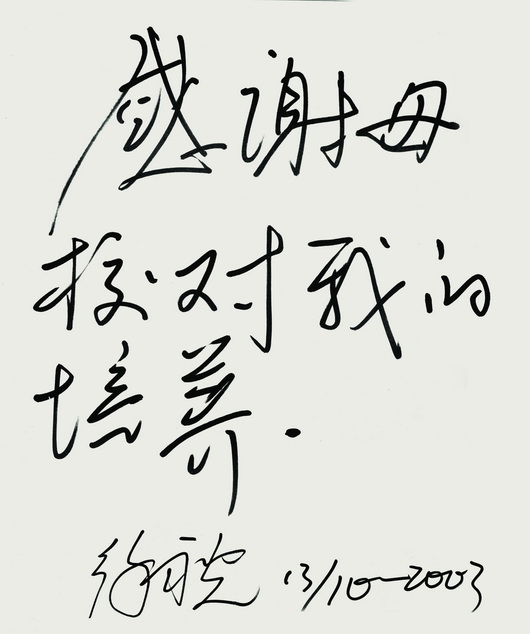 感谢母
校对我的
培养.
徐 13/10-2003